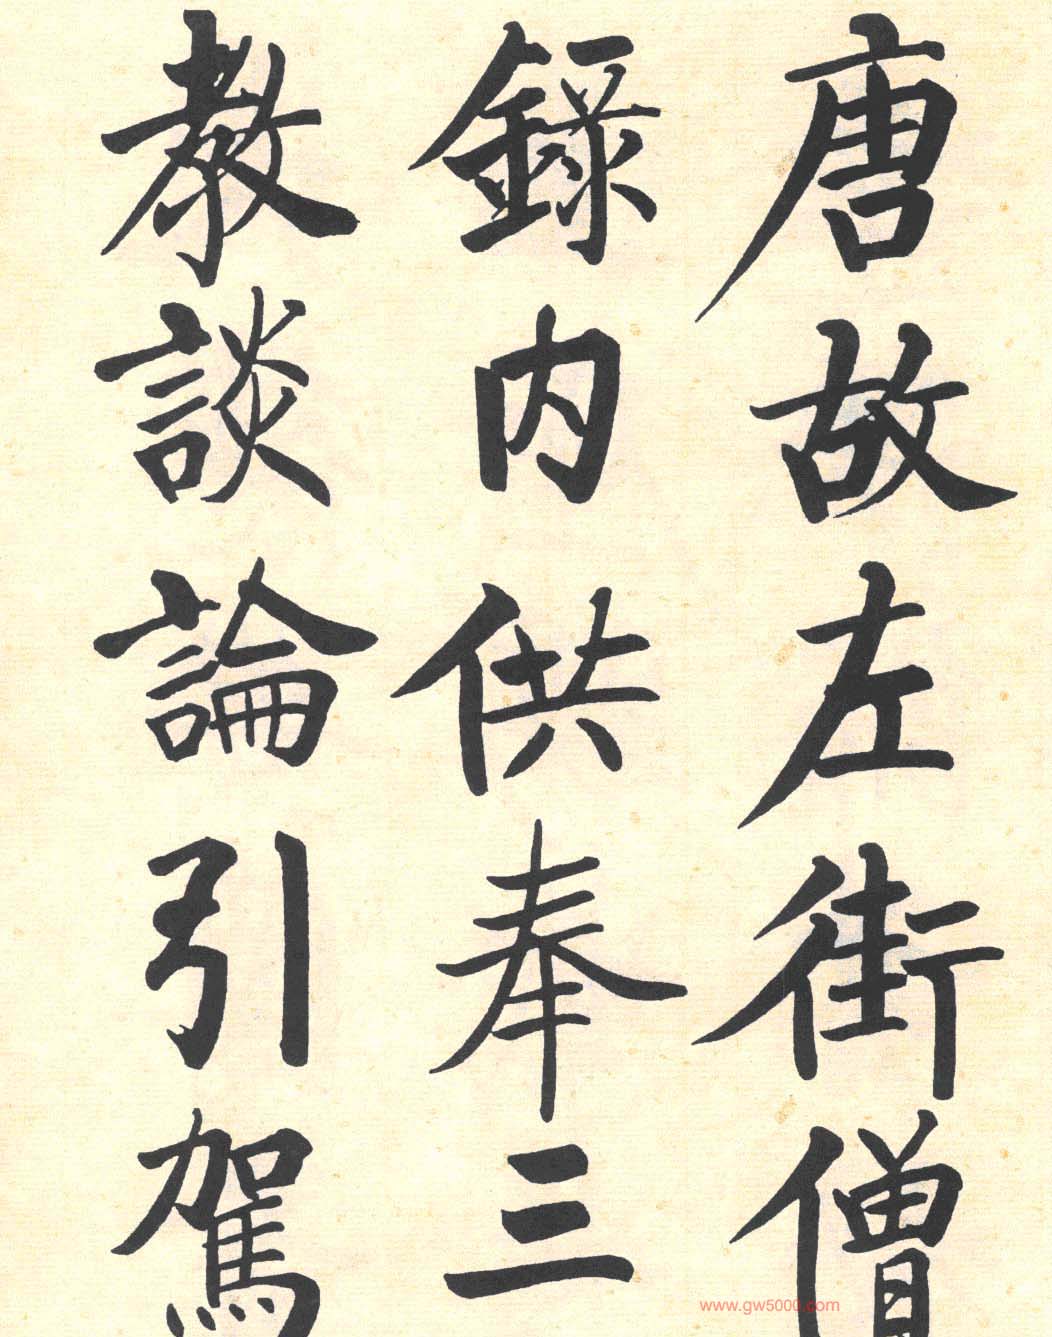 唐故左街僧
錄內供奉三
教談論引駕
www.gw5000.com